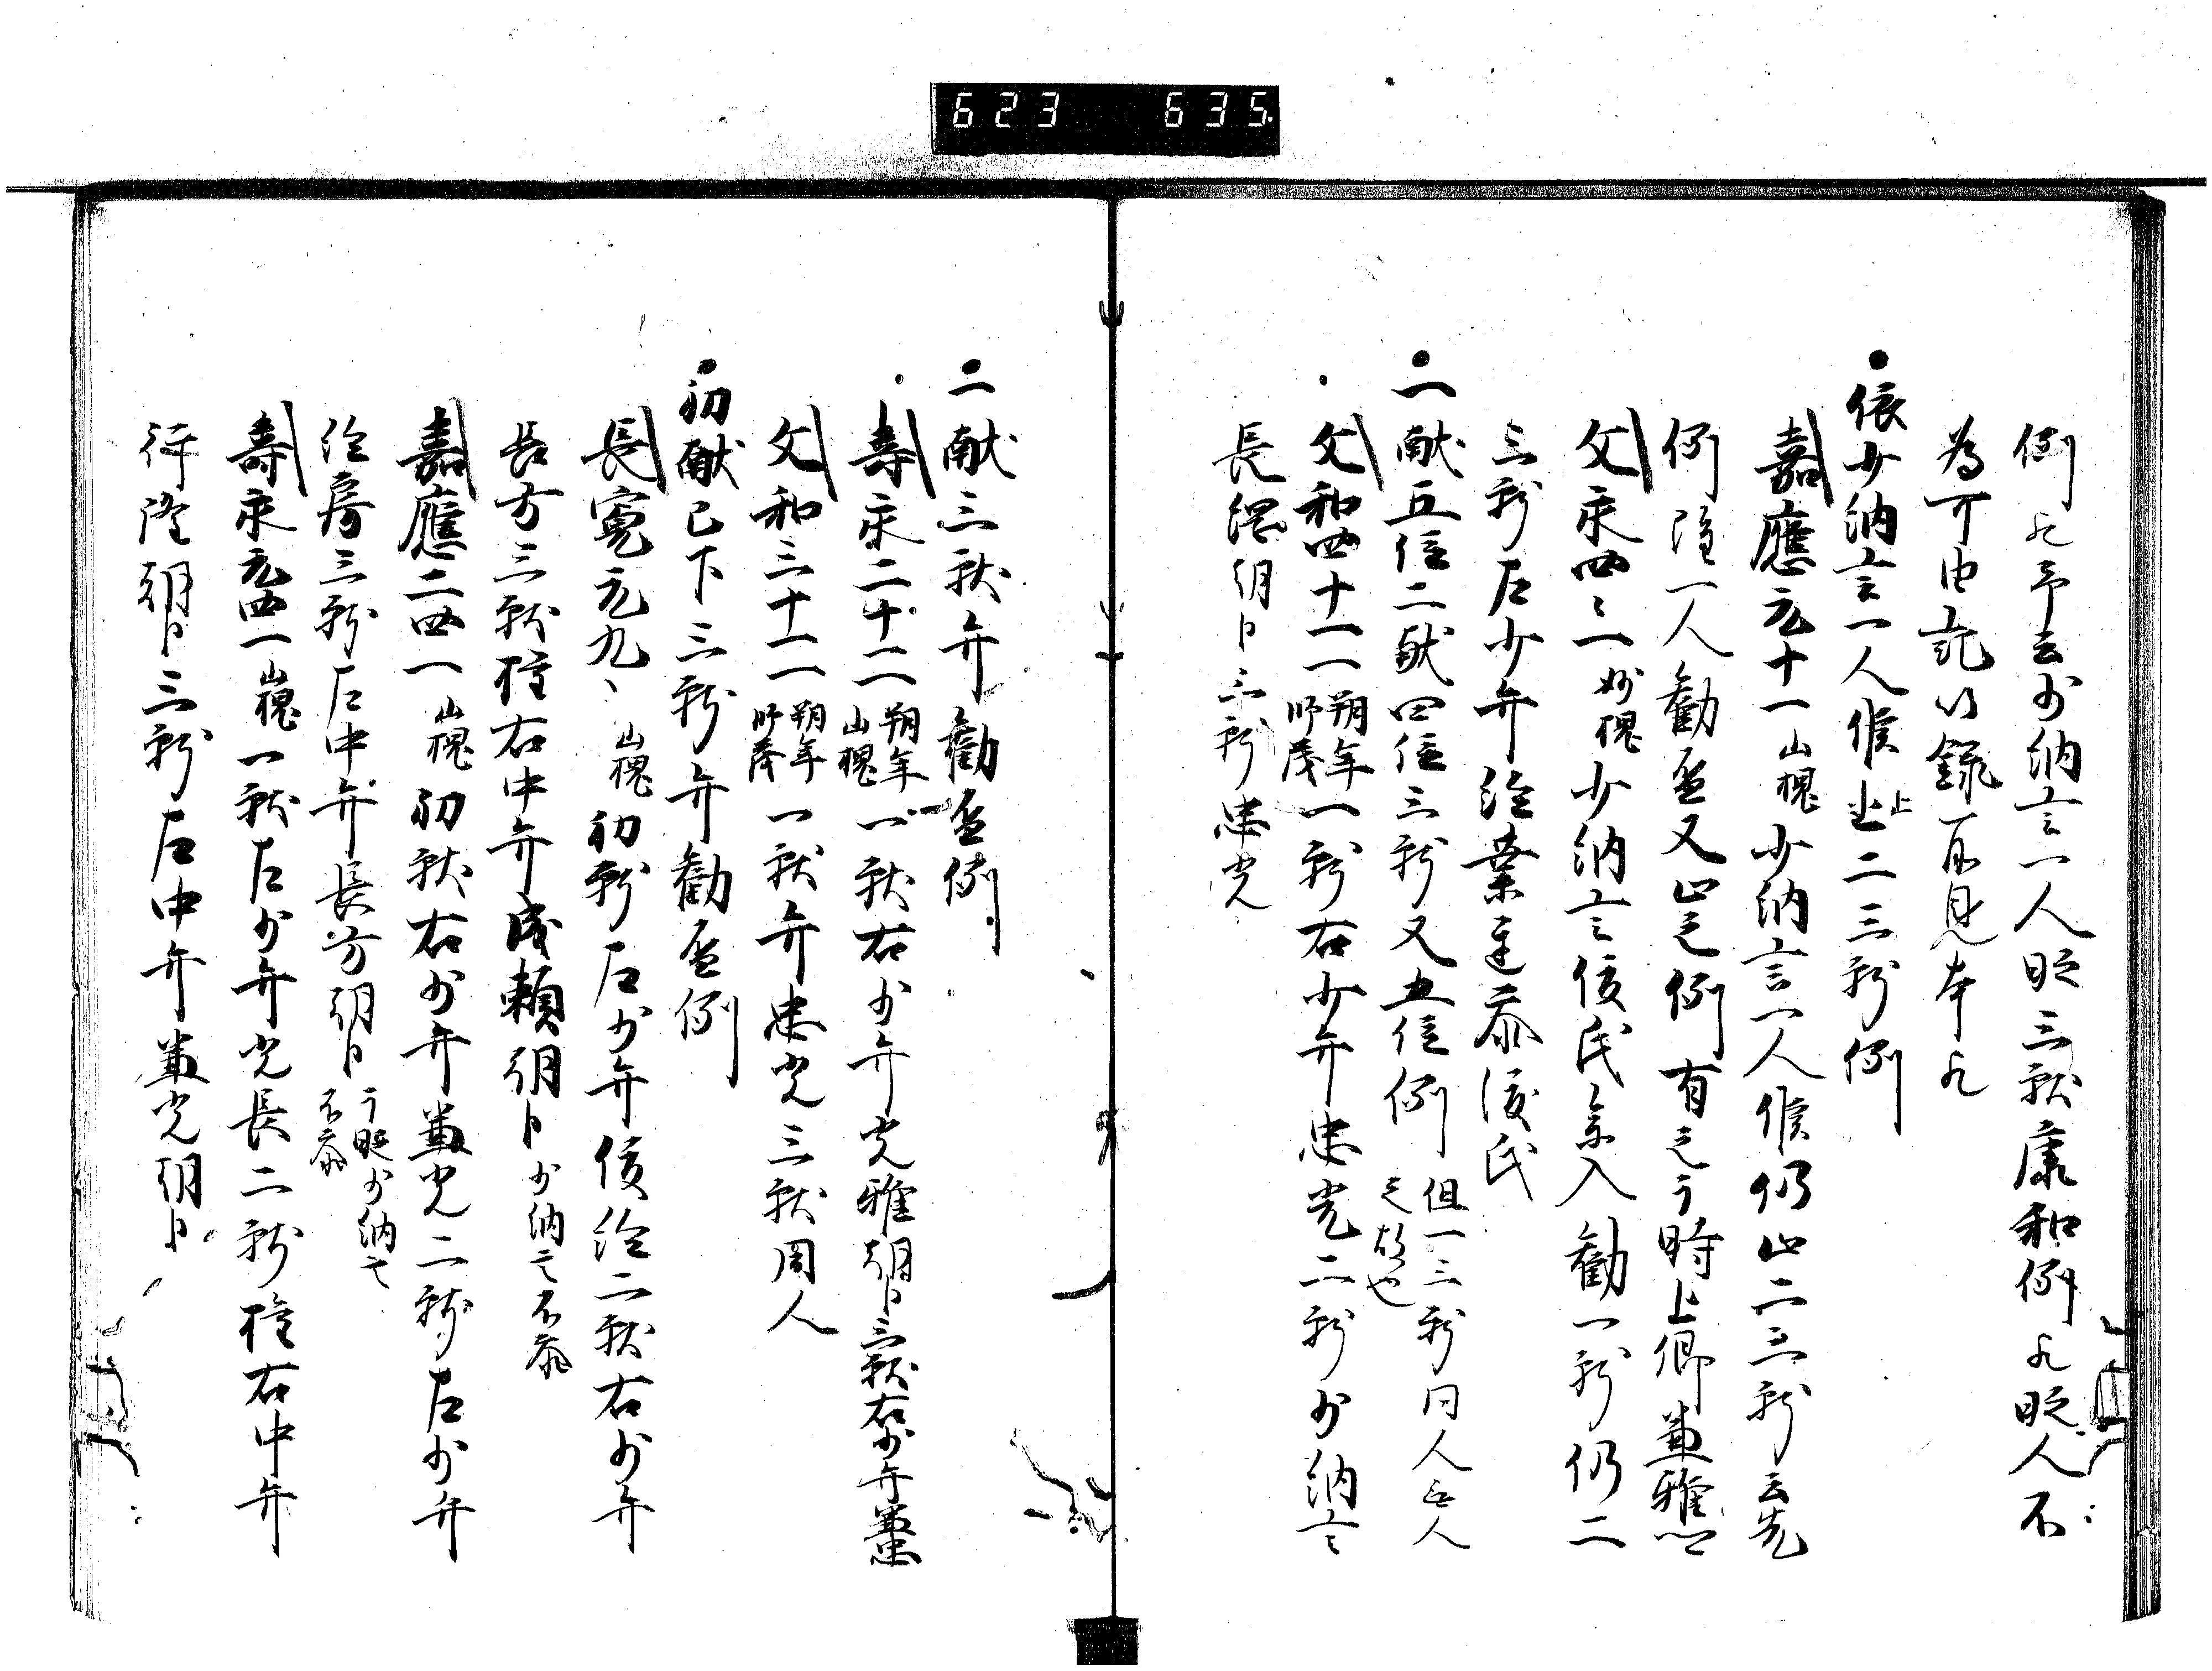 623 635
例也予云少納言一人昵三献康和例也昵人不
為可由記以録不見本也
依少納言一人候止上二三献例
嘉應元十一山槐少納言一人候仍止二三献云先
例障一人勧盃又止之例有之于時上卿兼雅
文永四々一妙槐少納言信氏参入勧一献仍二
三献左少弁経業逐参信氏
一献五位二献四位三献又五位例 但一三献同人
之故也
文和四十一一朔年師茂一献右少弁忠光二献少納言
長 朝臣三献忠光
二献三献弁勧盃例
壽永二十一一朔年山槐一献右少弁光雅朝臣三献右少弁兼忠
文和三十一一朔年師茂一献弁忠光三献同人
初献已下三献弁勧盃例
長寛元九、山槐初献左少弁俊経二献右少弁
長方三献権右中弁成頼朝臣少納言不参
嘉應二四一山槐初献右少弁兼光二献左少弁
経房三献左中弁長方朝臣 少納言
不参
壽永元四一山槐一献左少弁光長二献権右中弁
行隆朝臣三献左中弁兼光朝臣